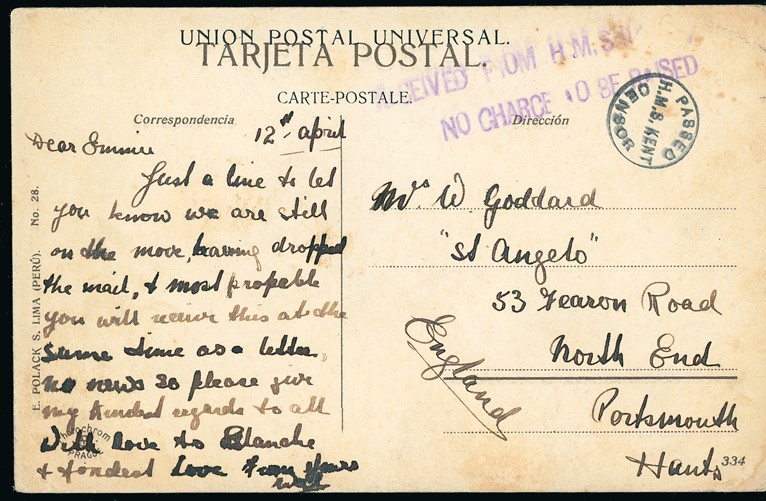 UNION POSTAL UNIVERSAL.
TARJETA POSTAL.
CARTE-POSTALE.
RECEIVED FROM H.M. SHIP
NO CHARGE TO BE RAISED
PASSED
H.M.S. KENT
CENSOR
Correspondencia
Dirección
12th april
Dear Emmie
Just a line to let
you know we are still
on the move, having dropped
the mail, & most propable
you will receive this at the
same time as a letter,
no news so please give
my kindest regards to all
With love to Blanche
& fondest Love From yours
Will
Mrs W. Goddard
"St Angelo"
53 Fearon Road
North End
Portsmouth
Hants
England
334
E. POLACK S. LIMA (PERÚ). No. 28.
Photochrom
PRAGUE